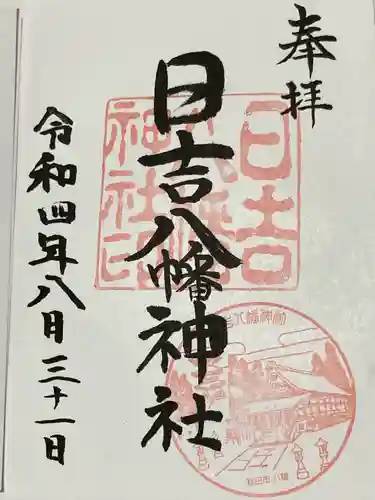 奉拝
日吉八幡神社
令和四年八月三十一日
日吉八幡神社印
日吉八幡神社
秋田市八橋